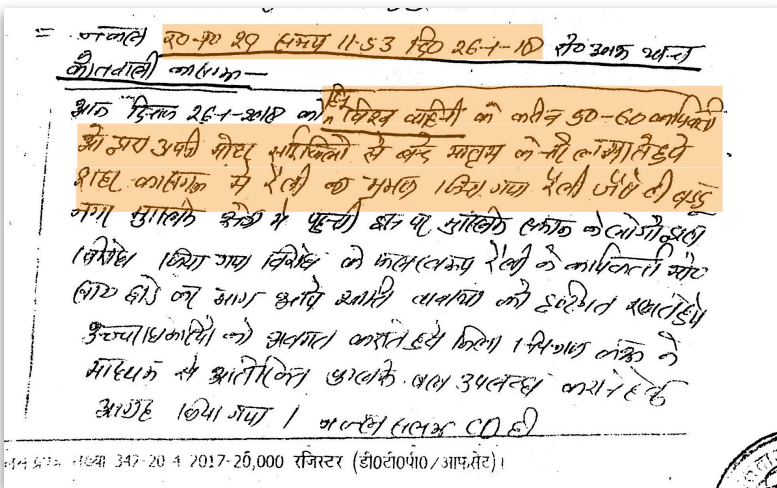 = नकल रपट नं० 29 समय 11-53 दि० 26-1-18 थाना
कोतवाली कासगंज –
आज दिनांक 26-1-2018 को विश्व वाहिनी के करीब 50-60 कार्यकर्ता
ओ द्वारा अपनी मोटर साईकिलो से वन्दे मातरम के नारे लगाते हुये
शहर कासगंज मे रैली का भ्रमण किया गया रैली जैसे ही बड्डू
नगर मुस्लिम क्षेत्र मे पहुंची इस पर मुस्लिम समाज के लोगो द्वारा
विरोध किया गया विरोध के फलस्वरूप रैली के कार्यकर्ता मोटर
छोड कर भाग शान्ति व्यवस्था को दृष्टिगत रखते हुये
उच्चाधिकारियो को अवगत कराते हुये जिला नियन्त्रण कक्ष के
माध्यम से अतिरिक्त पुलिस बल उपलब्ध कराने हेतु
आग्रह किया गया । CO
342-20 4 2017-20,000 रजिस्टर (डी0टी0पी0/आफसेट)।